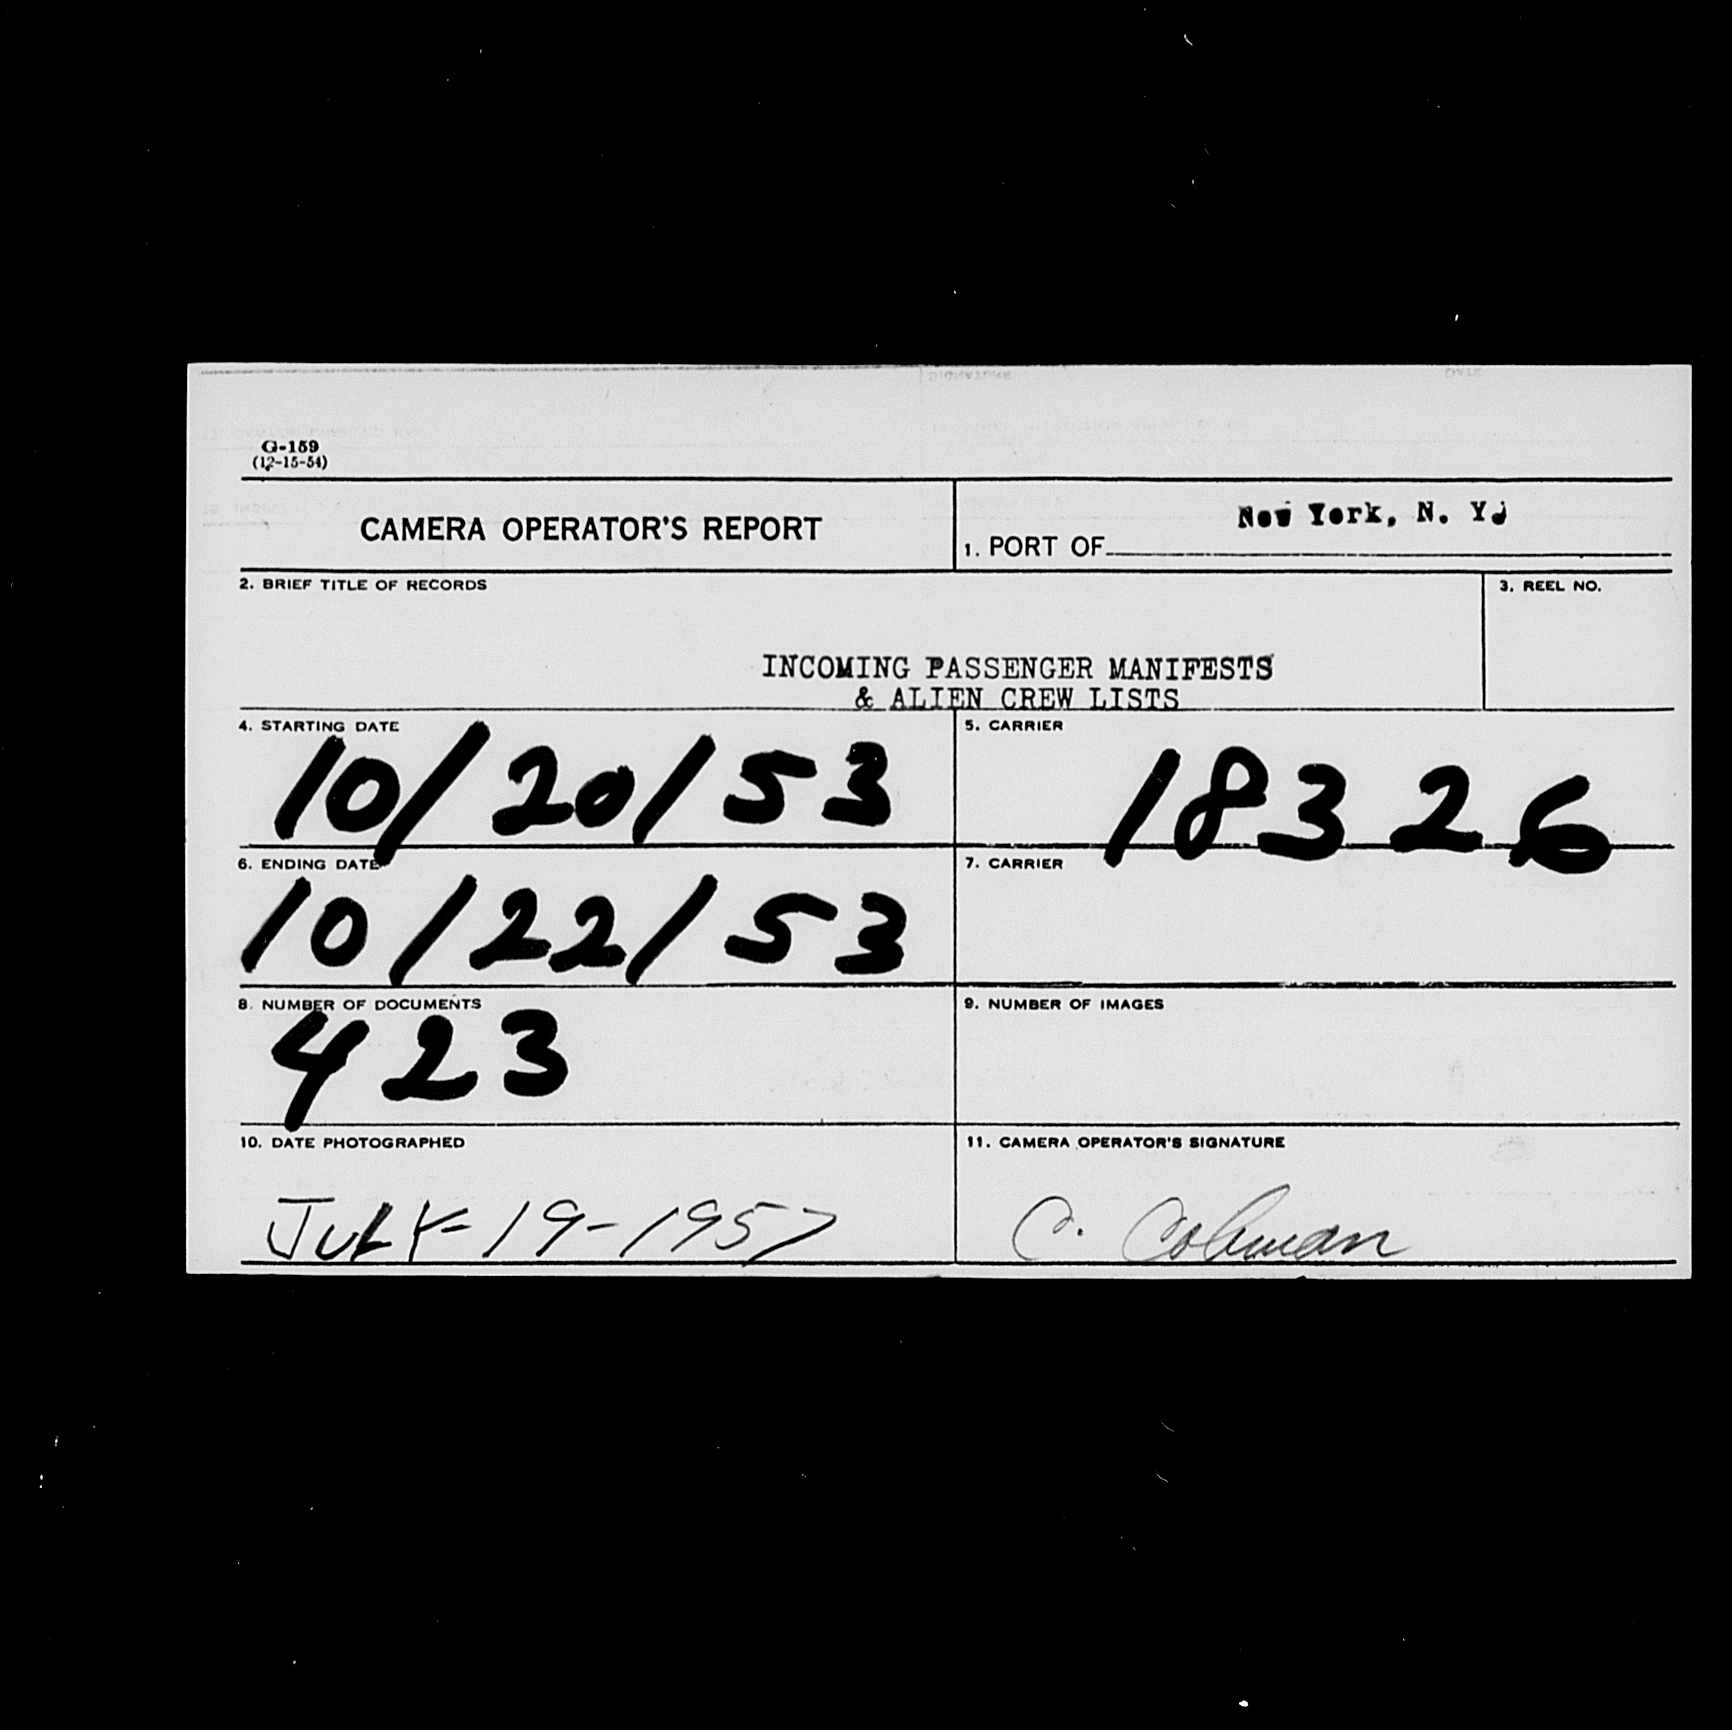 G-159
(12-15-54)
CAMERA OPERATOR'S REPORT
New York, N. Y.
1. PORT OF
2. BRIEF TITLE OF RECORDS
3. REEL NO.
INCOMING PASSENGER MANIFESTS
& ALIEN CREW LISTS
4. STARTING DATE
10/20/53
5. CARRIER
18326
6. ENDING DATE
10/22/53
7. CARRIER
8. NUMBER OF DOCUMENTS
423
9. NUMBER OF IMAGES
10. DATE PHOTOGRAPHED
JULY-19-1957
11. CAMERA OPERATOR'S SIGNATURE
C. Coleman